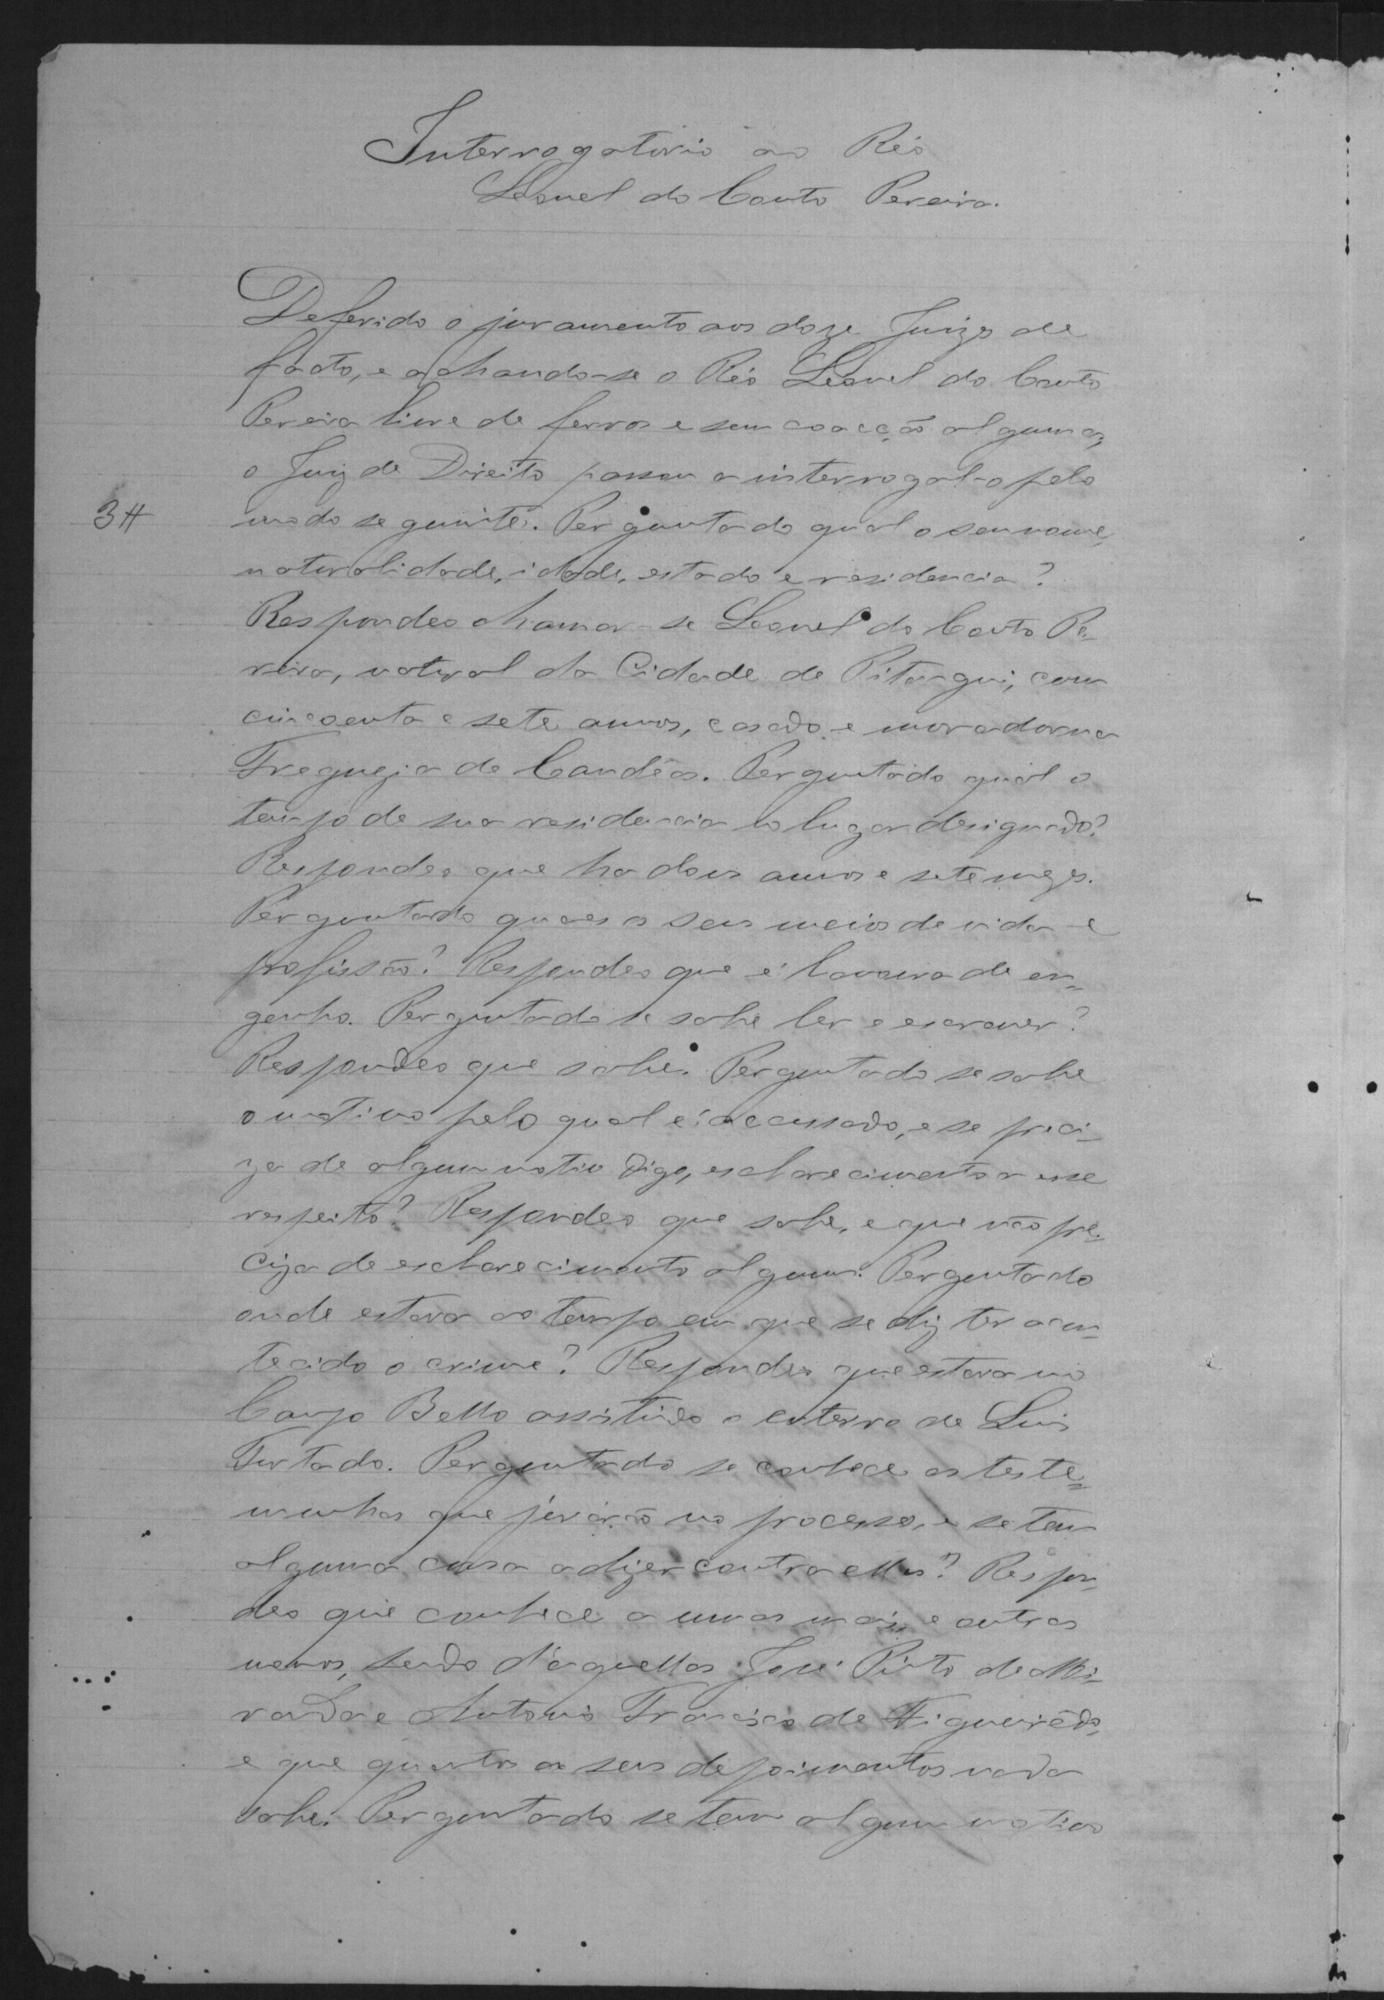 Interrogatorio ao Réo
Leonel do Couto Pereira.
Deferido o juramento aos doze Juizes de
facto, e achando-se o Réo Leonel do Couto
Pereira livre de ferros e sem coacção alguma,
o Juiz de Direito passou a interrogal-o pelo
3#
modo seguinte. Perguntado qual o seu nome,
naturalidade, idade, estado e residencia?
Respondeo chamar-se Leonel do Couto Pe-
reira, natural da Cidade de Pitangui, com
cincoenta e sete annos, casado e morador na
Freguezia de Candêas. Perguntado qual o
tempo de sua residencia no lugar designado?
Respondeo que ha dous annos e sete mezes.
Perguntado quaes os seus meios de vida e
profissão? Respondeo que é lavoura de en-
genho. Perguntado se sabe ler e escrever?
Respondeo que sabe. Perguntado se sabe
o motivo pelo qual é accusado, e se preci-
za de algum motivo digo, esclarecimento a esse
respeito? Respondeo que sabe, e que não pre-
ciza de esclarecimento algum. Perguntado
onde estava ao tempo em que se diz ter acon-
tecido o crime? Respondeo que estava no
Campo Bello assistindo o enterro de Luis
Furtado. Perguntado se conhece as teste-
munhas que jurárão no processo, e se tem
alguma cousa a dizer contra ellas? Respon-
deo que conhece a umas mais e outras
menos, sendo d'aquellas José Pinto de Mi-
randa e Antonio Francisco de Figueirêdo,
e que quanto a seus depoimentos nada
sabe. Perguntado se tem algum motivo